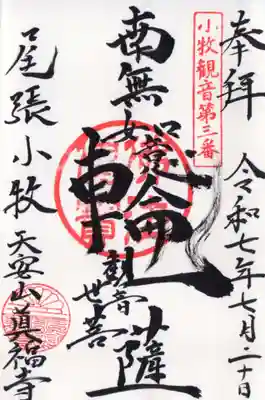 奉拝
小牧觀音第三番
令和七年七月二十日
南無如意輪観世音菩薩
尾張小牧
天安山真福寺